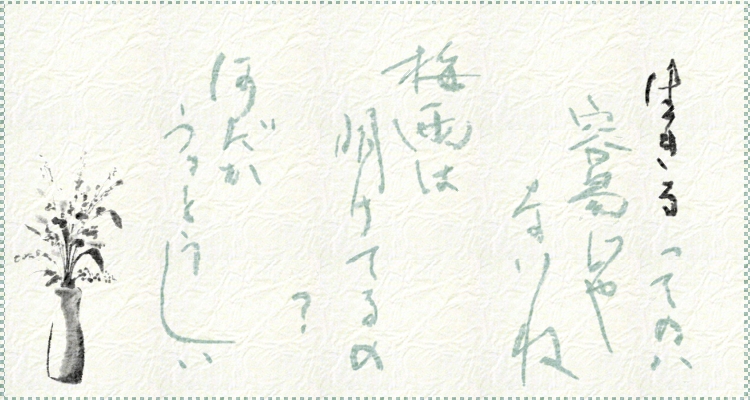 生きるってのハ
容易じゃ
ないね
梅雨は
明けてるの
？
何だか
うっとうしい